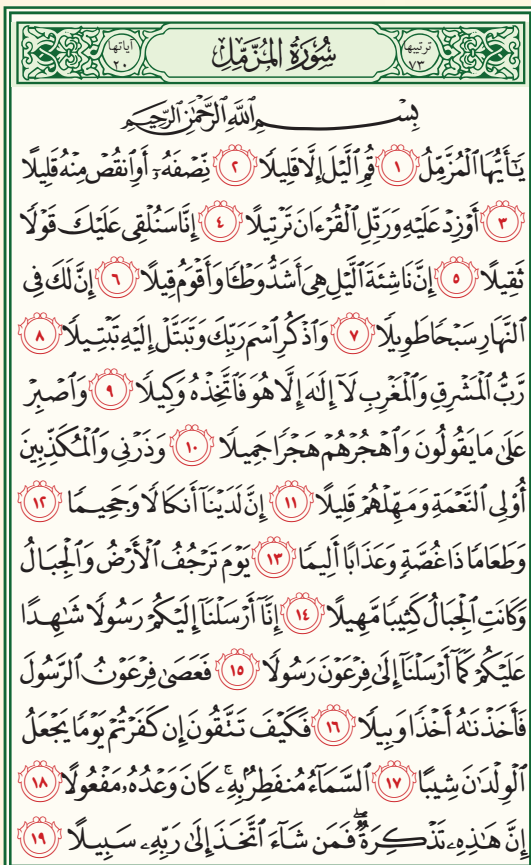 ترتيبها ٧٣ سُورَةُ المُزَّمِّلِ آياتها ٢٠
بِسْمِ اللَّهِ الرَّحْمَٰنِ الرَّحِيمِ
يَٰٓأَيُّهَا ٱلۡمُزَّمِّلُ ١ قُمِ ٱلَّيۡلَ إِلَّا قَلِيلٗا ٢ نِّصۡفَهُۥٓ أَوِ ٱنقُصۡ مِنۡهُ قَلِيلًا
٣ أَوۡ زِدۡ عَلَيۡهِ وَرَتِّلِ ٱلۡقُرۡءَانَ تَرۡتِيلًا ٤ إِنَّا سَنُلۡقِي عَلَيۡكَ قَوۡلٗا
ثَقِيلًا ٥ إِنَّ نَاشِئَةَ ٱلَّيۡلِ هِيَ أَشَدُّ وَطۡـٔٗا وَأَقۡوَمُ قِيلًا ٦ إِنَّ لَكَ فِي
ٱلنَّهَارِ سَبۡحٗا طَوِيلٗا ٧ وَٱذۡكُرِ ٱسۡمَ رَبِّكَ وَتَبَتَّلۡ إِلَيۡهِ تَبۡتِيلٗا ٨
رَّبُّ ٱلۡمَشۡرِقِ وَٱلۡمَغۡرِبِ لَآ إِلَٰهَ إِلَّا هُوَ فَٱتَّخِذۡهُ وَكِيلٗا ٩ وَٱصۡبِرۡ
عَلَىٰ مَا يَقُولُونَ وَٱهۡجُرۡهُمۡ هَجۡرٗا جَمِيلٗا ١٠ وَذَرۡنِي وَٱلۡمُكَذِّبِينَ
أُوْلِي ٱلنَّعۡمَةِ وَمَهِّلۡهُمۡ قَلِيلًا ١١ إِنَّ لَدَيۡنَآ أَنكَالٗا وَجَحِيمٗا ١٢
وَطَعَامٗا ذَا غُصَّةٖ وَعَذَابًا أَلِيمٗا ١٣ يَوۡمَ تَرۡجُفُ ٱلۡأَرۡضُ وَٱلۡجِبَالُ
وَكَانَتِ ٱلۡجِبَالُ كَثِيبٗا مَّهِيلًا ١٤ إِنَّآ أَرۡسَلۡنَآ إِلَيۡكُمۡ رَسُولٗا شَٰهِدًا
عَلَيۡكُمۡ كَمَآ أَرۡسَلۡنَآ إِلَىٰ فِرۡعَوۡنَ رَسُولٗا ١٥ فَعَصَىٰ فِرۡعَوۡنُ ٱلرَّسُولَ
فَأَخَذۡنَٰهُ أَخۡذٗا وَبِيلٗا ١٦ فَكَيۡفَ تَتَّقُونَ إِن كَفَرۡتُمۡ يَوۡمٗا يَجۡعَلُ
ٱلۡوِلۡدَٰنَ شِيبًا ١٧ ٱلسَّمَآءُ مُنفَطِرُۢ بِهِۦۚ كَانَ وَعۡدُهُۥ مَفۡعُولًا ١٨
إِنَّ هَٰذِهِۦ تَذۡكِرَةٞۖ فَمَن شَآءَ ٱتَّخَذَ إِلَىٰ رَبِّهِۦ سَبِيلًا ١٩